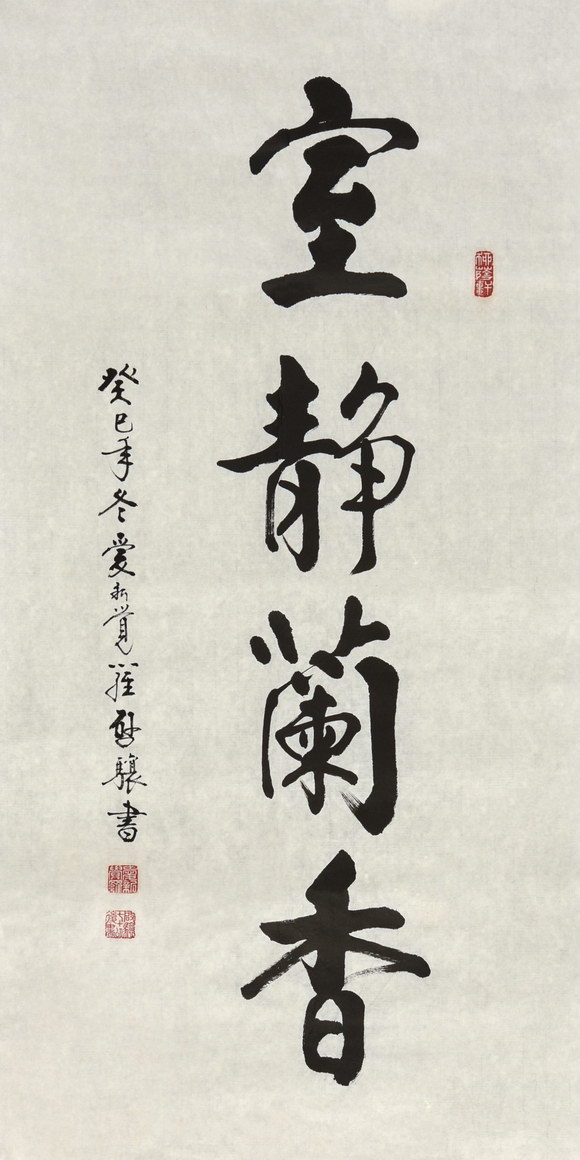 室静蘭香
癸巳年冬爱新覺羅啟驤書